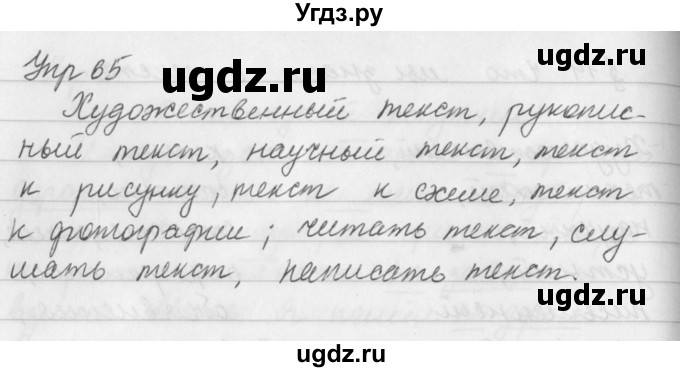 Угдз.ру
Упр 65
ugdz.ru
ugdz.ru
Художественный текст, рукопис-
ный текст, научный текст, текст
к рисунку, текст к схеме, текст
к фотографии; читать текст, слу-
шать текст, написать текст.
ugdz.ru
ugdz.ru
ugdz.ru
ugdz.ru